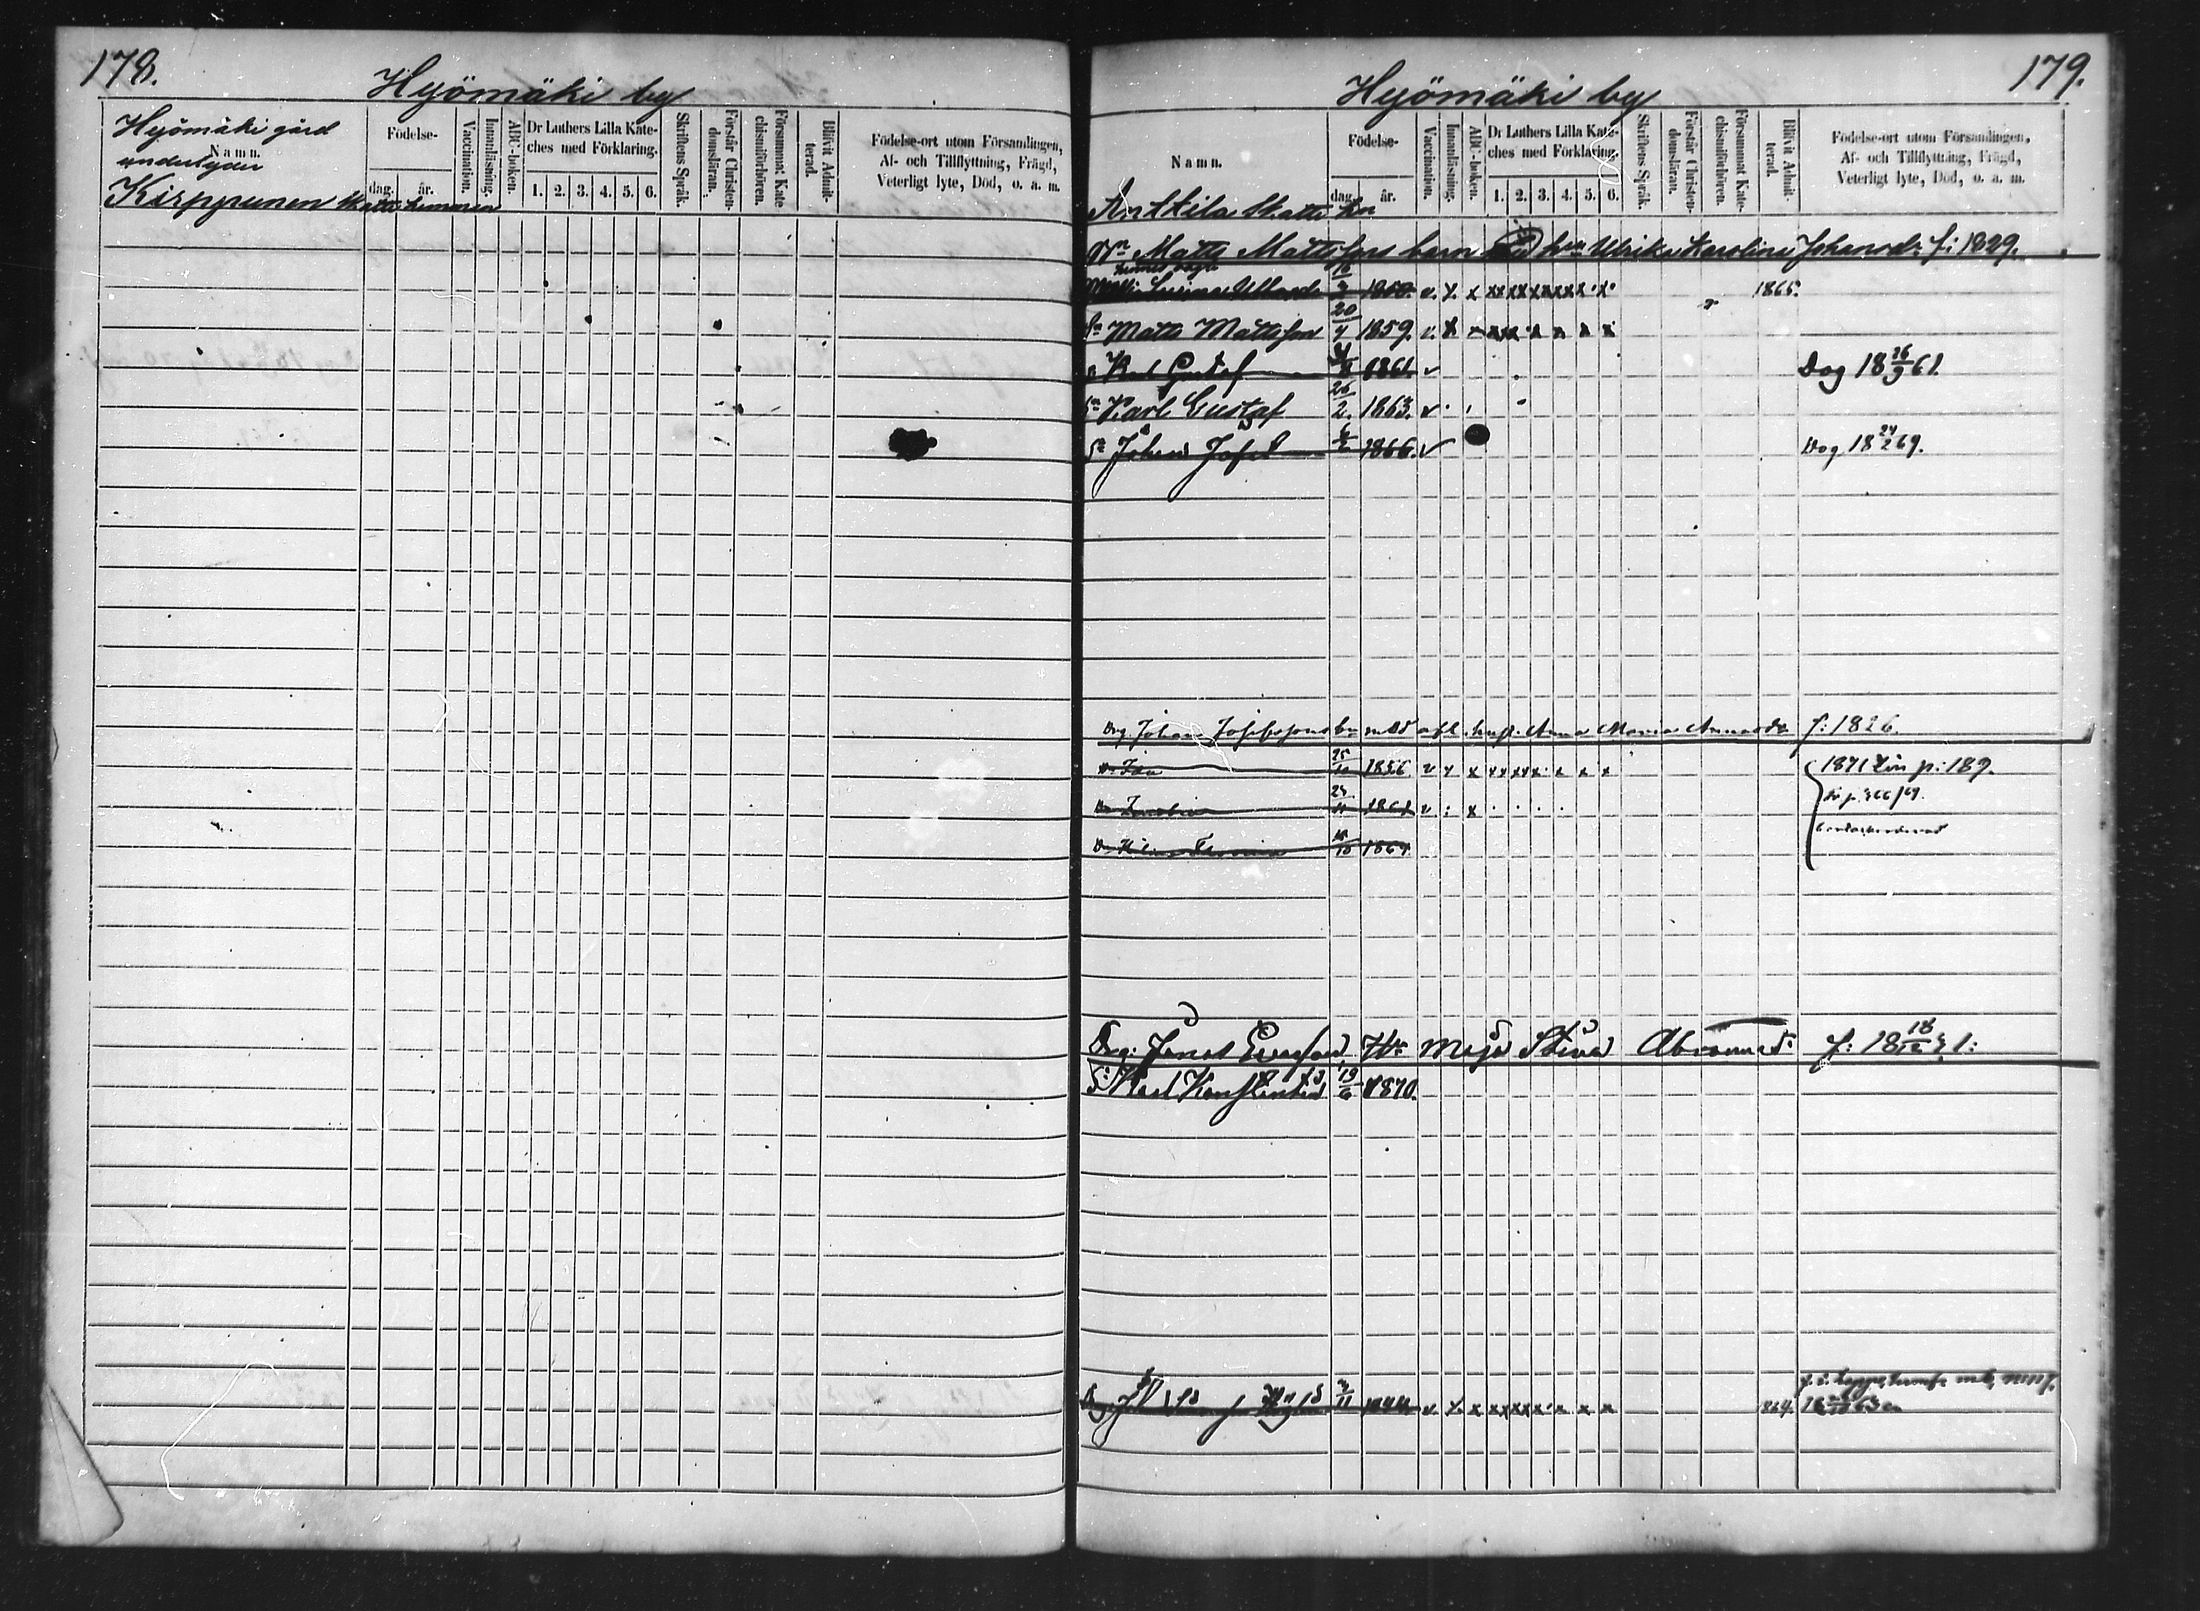 178.
Hyömäki by
Hyömäki gård
Namn.
underlyder
Kirppunen Skatte hemman
Födelse-
dag. år.
Vaccination.
Innanläsning.
ABC-boken.
Dr Luthers Lilla Kate-
ches med Förklaring.
1. 2. 3. 4. 5. 6.
Skriftens Språk.
Förstår Christen-
domsläran.
Försummat Kate-
chismiförhören.
Blifvit Admit-
terad.
Födelse-ort utom Församlingen,
Af- och Tillflyttning, Frägd,
Veterligt lyte, Död, o. a. m.
179.
Hyömäki by
Namn.
Födelse-
dag. år.
Vaccination.
Innanläsning.
ABC-boken.
Dr Luthers Lilla Kate-
ches med Förklaring.
1. 2. 3. 4. 5. 6.
Skriftens Språk.
Förstår Christen-
domsläran.
Försummat Kate-
chismiförhören.
Blifvit Admit-
terad.
Födelse-ort utom Församlingen,
Af- och Tillflyttning, Frägd,
Veterligt lyte, Död, o. a. m.
Anttila Skatte hn
Matts Mattssons barn med hu Ulrika Karolina Johansdr f: 1829.
16/3 1850. v. x x xx xx xx xx x x 1865.
Sn Matts Mattsson 20/4 1859. v. x
Karl Gustaf 1861. v Dog 18 16/9 61.
Sn Karl Gustaf 26/2. 1863. v
Sn Johan Josef 6/2 1866. v Dog 18 24/2 69.
Drg. Johan Josefssons bn med afl. hust. Anna Maria f: 1826.
Dr Ida 25/10 1856 v x x xx xx x x x 1871 Lin p: 189.
Dr 23/11 1861 v : x
Dr 15/10 1869
Drg. Hu Maja Stina Abramsd. f: 18 18/12 31:
S: Karl Konstantin 19/6 1870.
Drg 2/11 1844 v. x. x xx xx x x x 864.